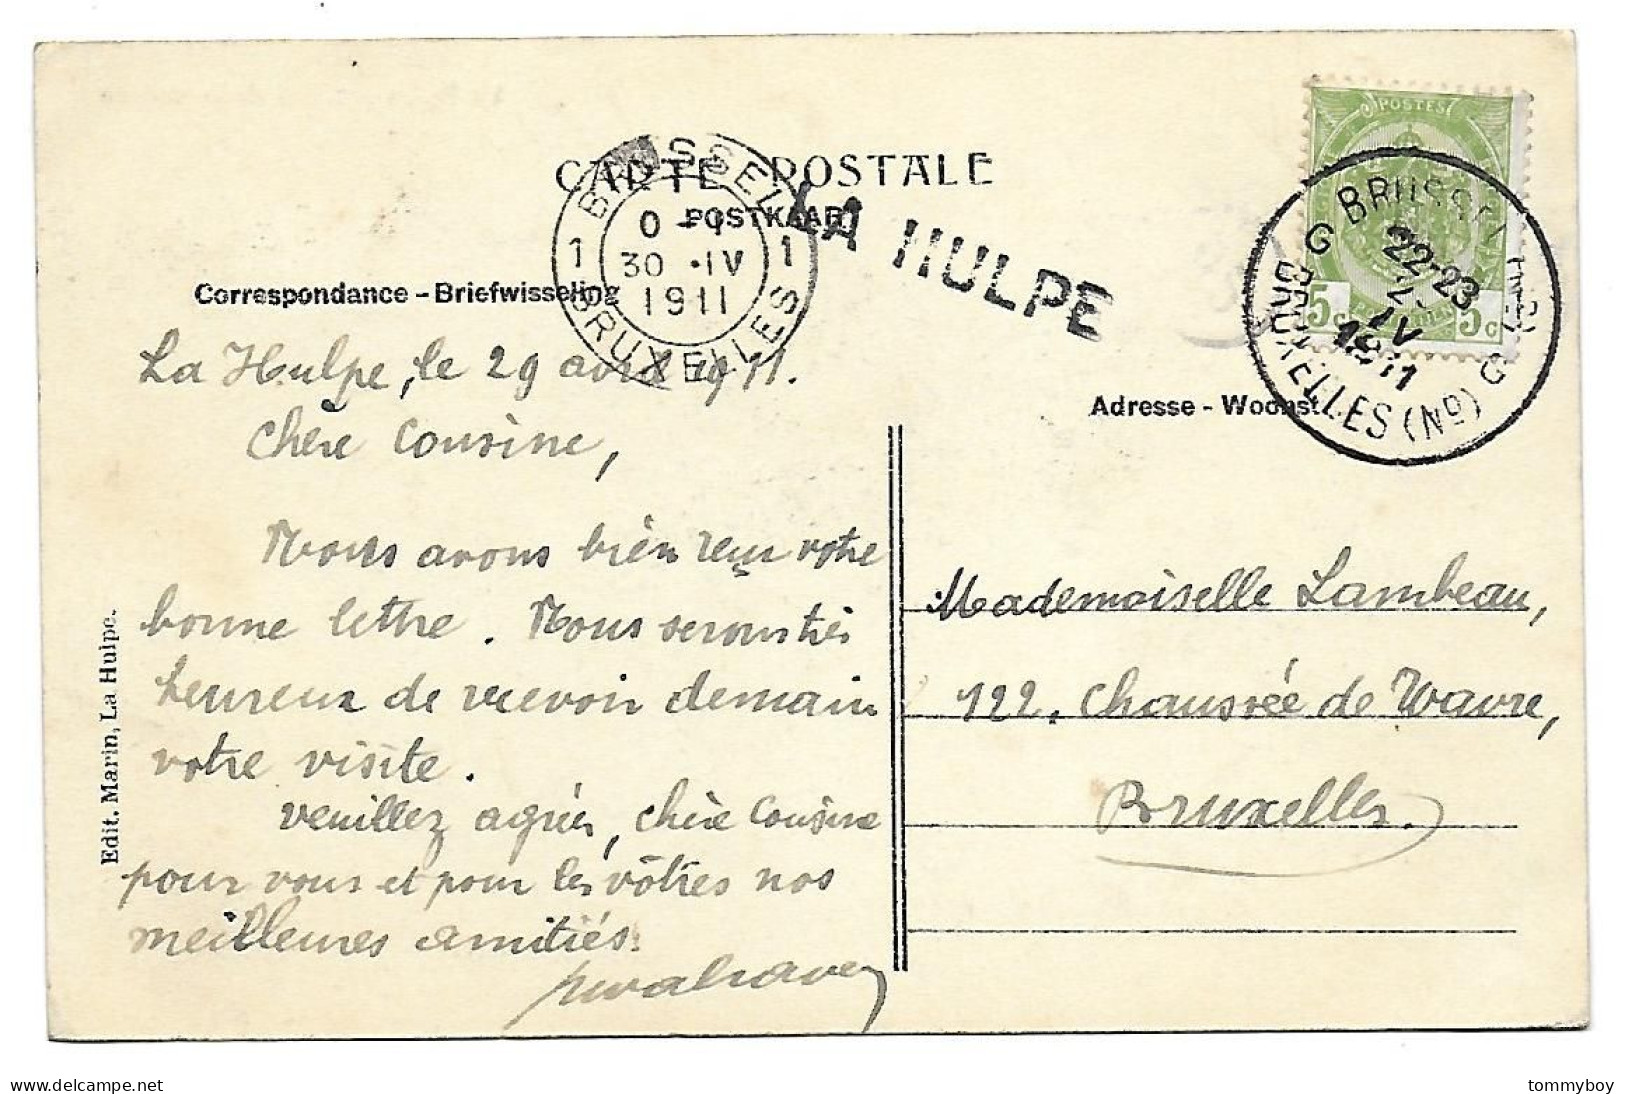 CARTE POSTALE
POSTKAART
BRUSSEL
1 1
0-1
30 · IV
1911
BRUXELLES
LA HULPE
POSTES
5c 5c
BRUSSEL
G G
22-23
IV
1911
BRUXELLES (Nᴅ)
Correspondance – Briefwisseling
Adresse - Woonst
La Hulpe, le 29 avril 1911.
Chère Cousine,
Nous avons bien reçu votre
bonne lettre. Nous serons très
heureux de recevoir demain
votre visite.
Veuillez agréer, chère Cousine
pour vous et pour les vôtres nos
meilleures amitiés.
Mademoiselle Lambeau,
122, Chaussée de Wavre,
Bruxelles.
Edit. Marin, La Hulpe.
delcampe.net
tommyboy